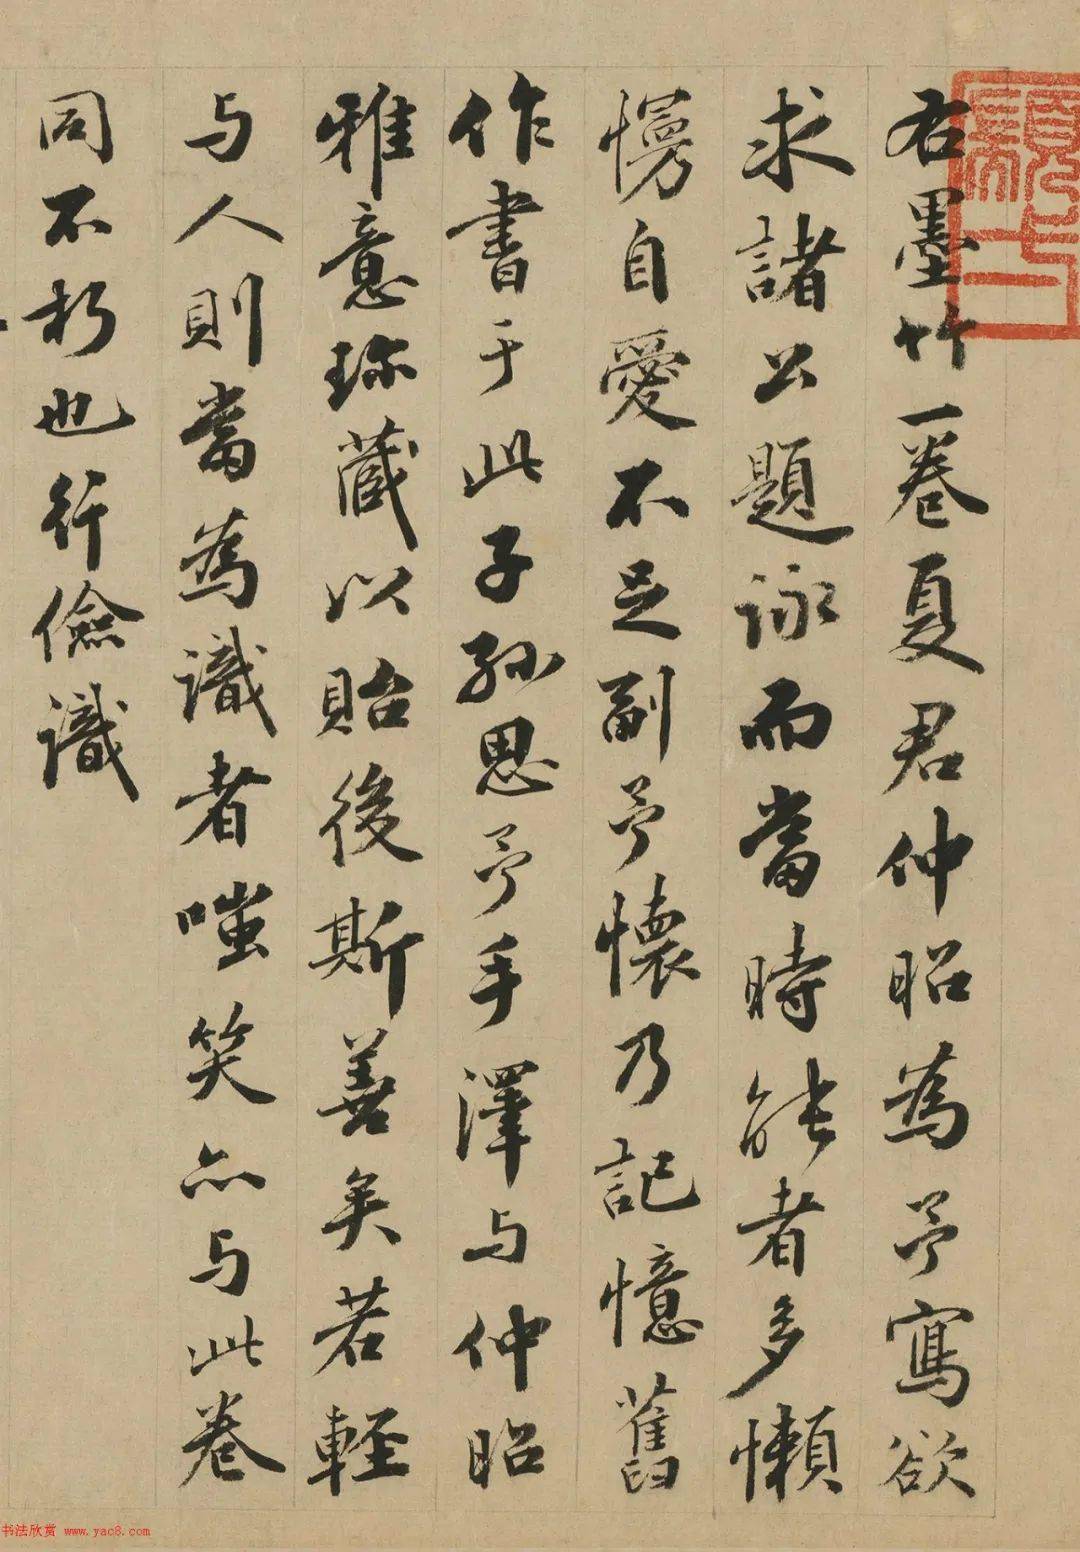 右墨竹一卷夏君仲昭為予寫欲
求諸公題詠而當時能者多懶
慢自愛不足副予懷乃記憶舊
作書于此子孫思予手澤与仲昭
雅意珎蔵以貽後斯善矣若輕
与人則當為識者嗤笑亦与此卷
同不朽也行儉識
书法欣赏 www.yac8.com